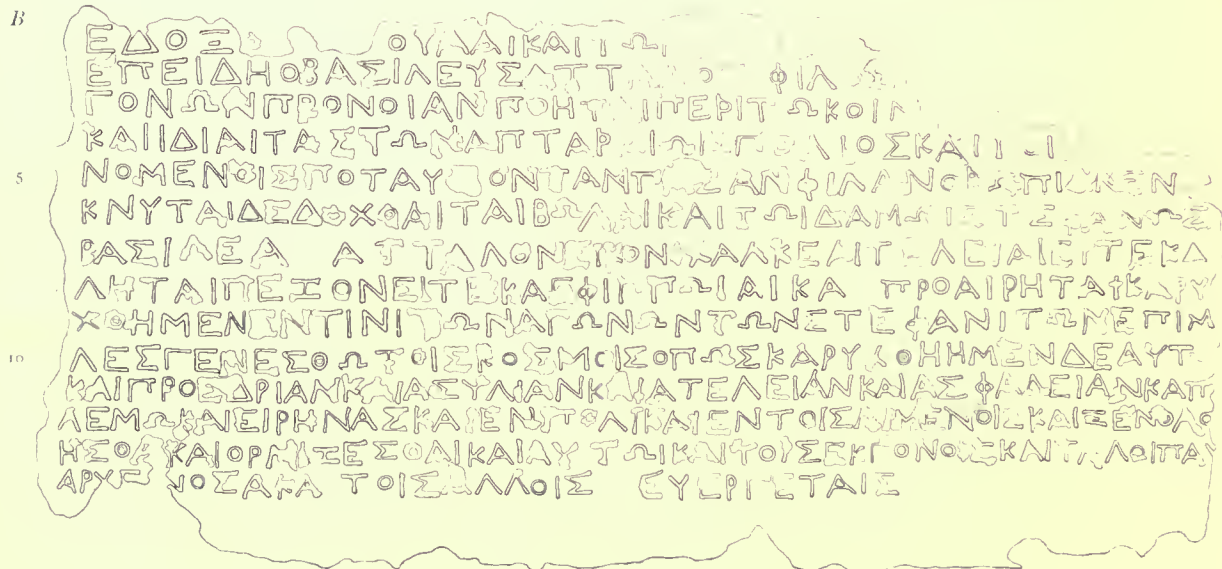 B
ΕΔΟΞ ΟΥΛΑΙΚΑΙΤΩΙ
ΕΠΕΙΔΗΟΒΑΣΙΛΕΥΣΑΤΤ Ο ΦΙΛ
ΓΟΝΩΝΠΡΟΝΟΙΑΝΠΟΗΤ ΙΠΕΡΙΤΩΚΟΙΝ
ΚΑΙΙΔΙΑΙΤΑΣΤΩΝΑΠΤΑΡ ΙΩΝΠΟΛΙΟΣΚΑΙ
5 ΝΟΜΕΝΟΙΣΠΟΤΑΥΤΟΝΤΑΝΠΑΣΑΝΦΙΛΑΝΟ ΠΙΑΝΕΝ
ΚΝΥΤΑΙΔΕΔΟΧΘΑΙΤΑΙΒΩΛΑΙΚΑΙΤΩΙΔΑΜΩΙΣΤΕΦΑΝΩΣ
ΒΑΣΙΛΕΑ ΑΤΤΑΛΟΝΕΙΚΟΝΙΧΑΛΚΕΑΙΤΕΛΕΙΑΙΕΙΤΕΚΑ
ΛΗΤΑΙΠΕΞΟΝΕΙΤΕΚΑΕΦΙΠΠΩΙΑΙΚΑ ΠΡΟΑΙΡΗΤΑΙΚΑΡΥ
ΧΘΗΜΕΝΕΝΤΙΝΙΤΩΝΑΓΩΝΩΝΤΩΝΣΤΕΦΑΝΙΤΩΝΕΠΙΜ
10 ΛΕΣΓΕΝΕΣΘΩΤΟΙΣΚΟΣΜΟΙΣΟΠΩΣΚΑΡΥΧΘΗΗΜΕΝΔΕΑΥΤ
ΚΑΙΠΡΟΕΔΡΙΑΝΚΑΙΑΣΥΛΙΑΝΚΑΙΑΤΕΛΕΙΑΝΚΑΙΑΣΦΑΛΕΙΑΝΚΑΠ
ΛΕΜΩΚΑΙΕΙΡΗΝΑΣΚΑΙΕΝΠΟΛΙΚΑΙΕΝΤΟΙΣΛΙΜΕΝΟΙΣΚΑΙΞΕΝΟΛΟ
ΗΣΘΑΙΚΑΙΟΡΜΙΞΕΣΘΑΙΚΑΙΑΥΤΩΙΚΑΙΤΟΙΣΕΚΓΟΝΟΙΣΚΑΙΤΑΛΟΙΠΑΥ
ΑΡΧΕΝ ΝΟΣΑΚΑ ΤΟΙΣΑΛΛΟΙΣ ΕΥΕΡΓΕΤΑΙΣ